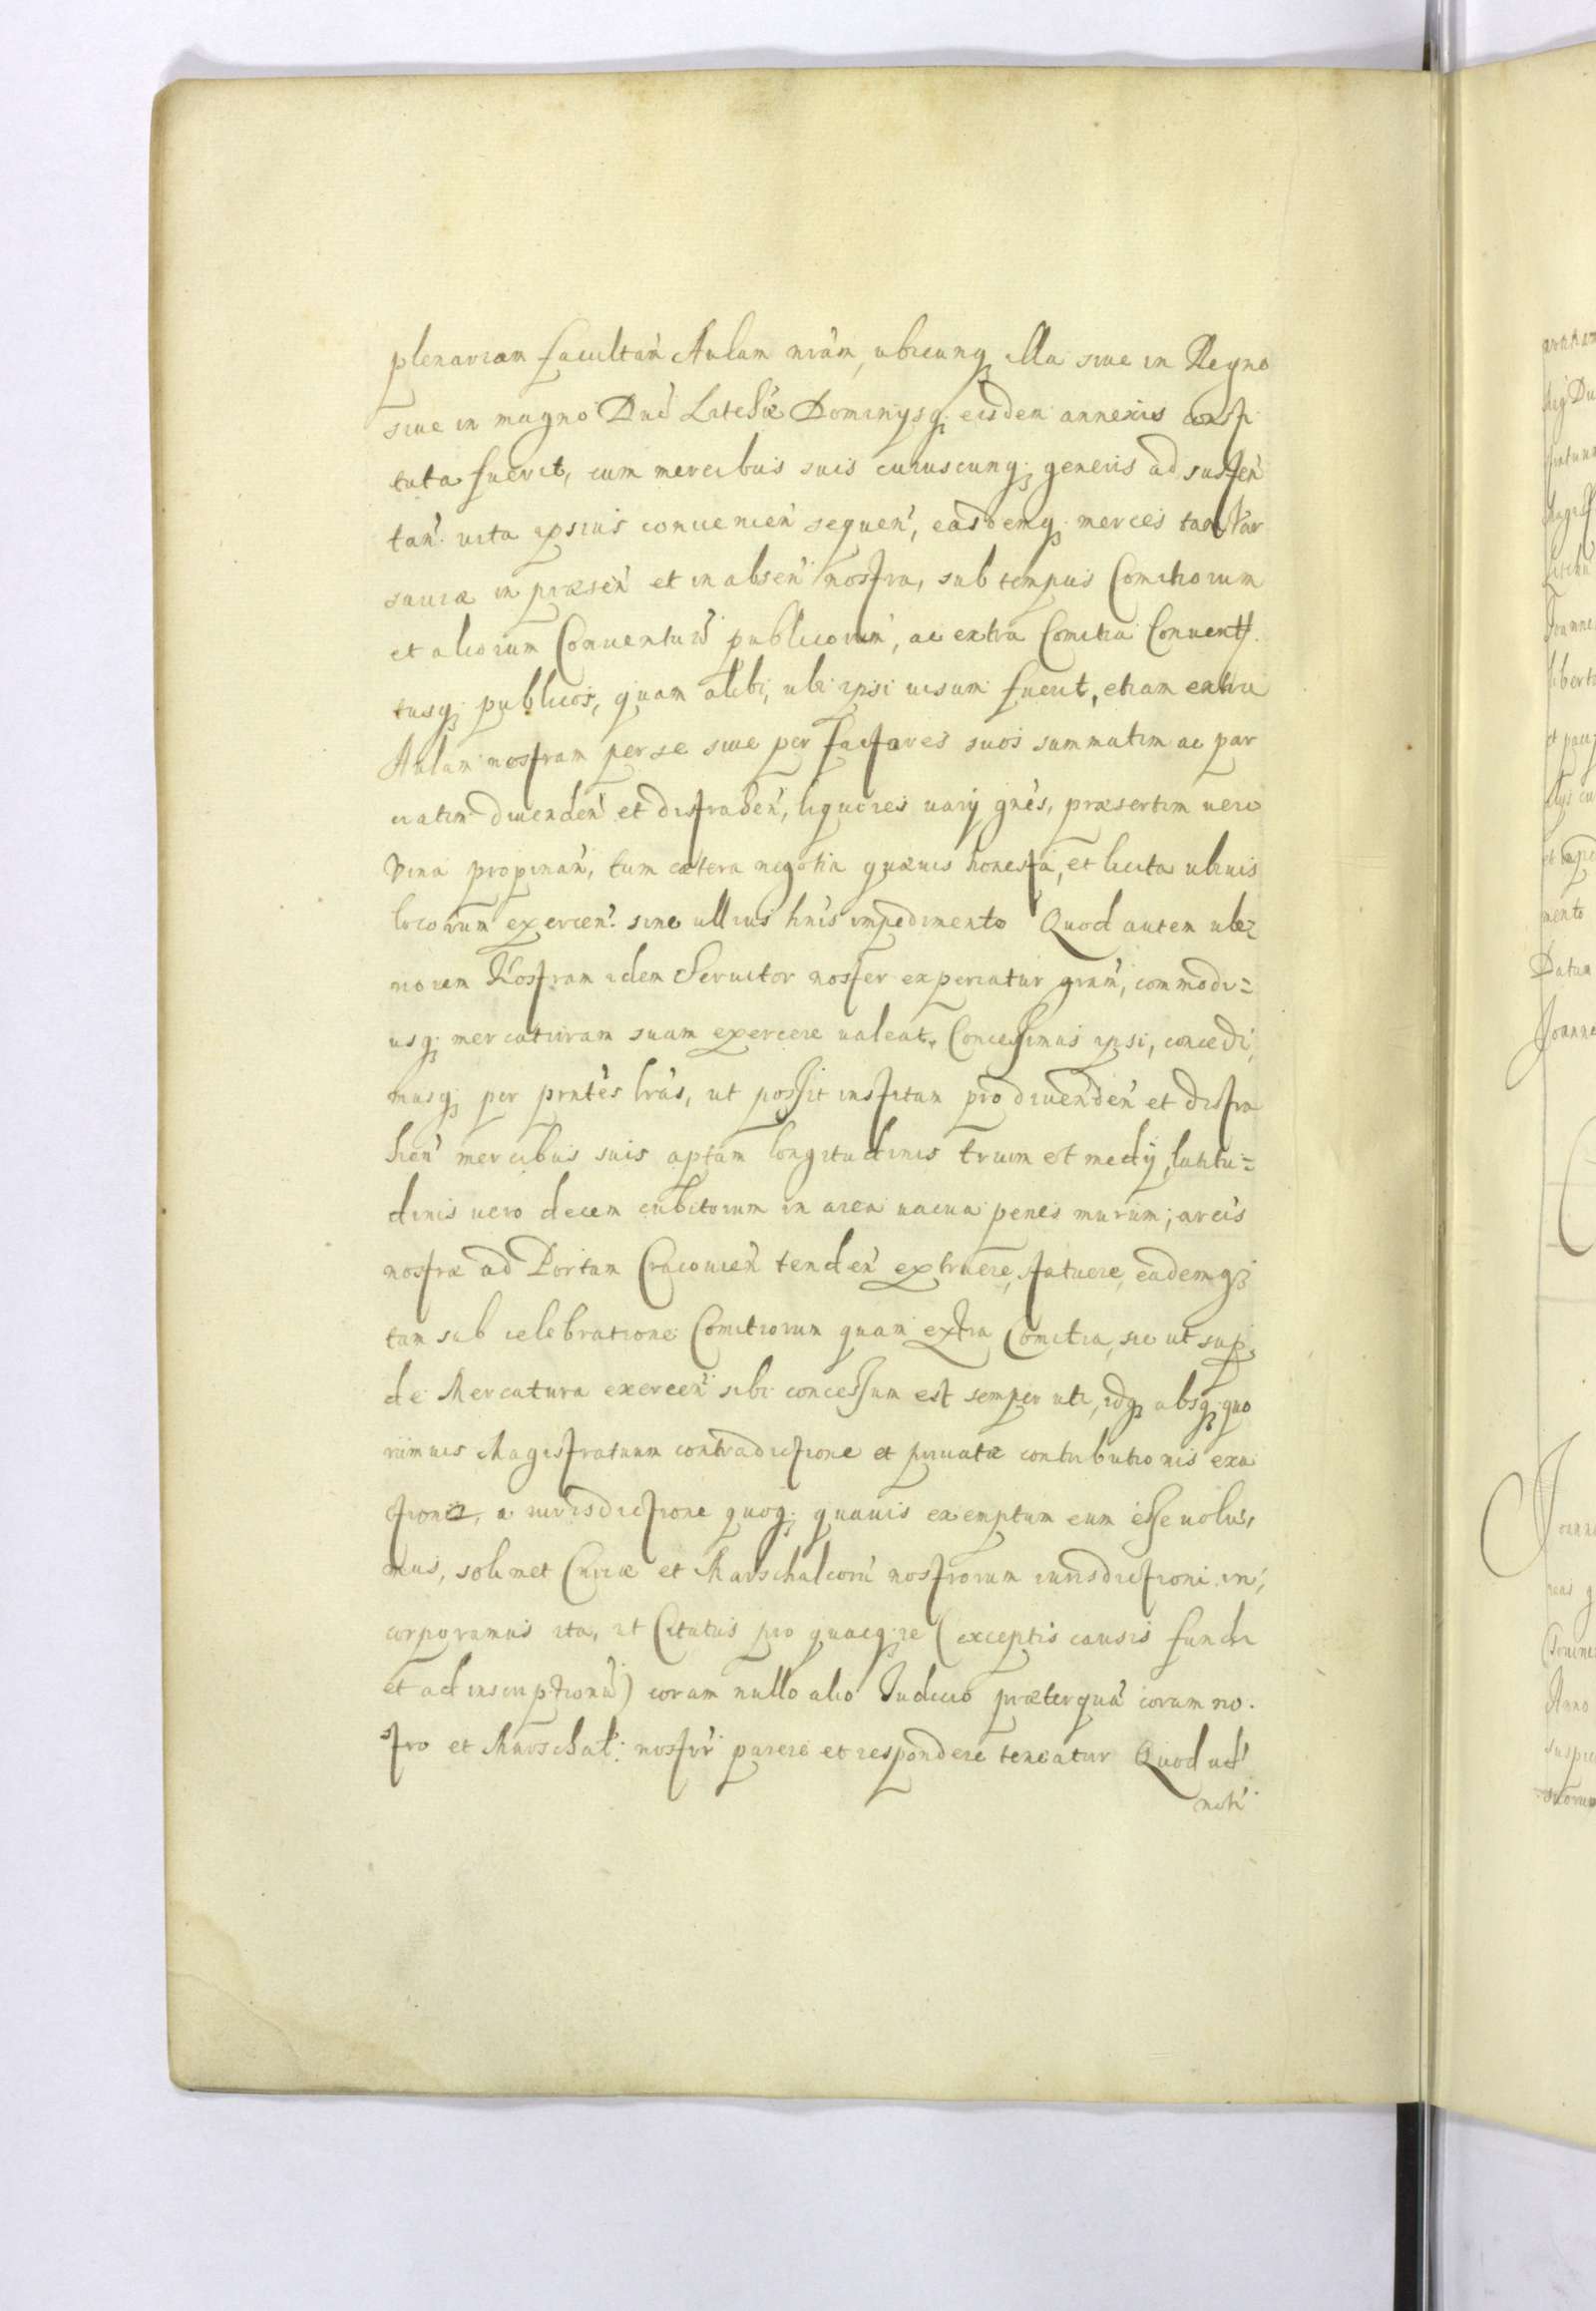 plenariam facultań Aulam nrám, ubicunq illa siue in Regno
siue in magno Duć Lithúæ Dominysq eisdem annexis consti
tuta fuerit, cum mercibus suis cuiuscunq generis ad susten
tań vita ipsius conuenień sequeń, easdemq merces tam Var
sauiæ in præseń et in abseń nostra, sub tempus Comitiorum
et aliorum Conuentuú publicorum, ac extra Comitia Conuent
tusq publicos, quam alibi, ubi ipsi uisum fuerit, etiam extra
Aulam nostram per se siue per factores suos summatim ac par
ciatim diuendeń et distraheń, liquores uarij gńes, præsertim uero
Vina propinań, tum cætera negotia quæuis honesta, et licita ubiuis
locorum exerceń sine ullius hńis impedimento Quod autem ube
riorem Nostram idem Seruitor noster experiatur grám, commodi=
usq mercaturam suam exercere ualeat, Concessimus ipsi, concedi
musq per pńtes lrás, ut possit institam pro diuendeń et distra
heń mercibus suis aptam longitudinis trium et medij, latitu=
dinis uero decem cubitorum in area uacua penes murum, arcis
nostræ ad Portam Cracouień tendeń extruere, statuere, eademq
tam sub celebratione Comitiorum quam extra Comitia, sic ut sup
de Mercatura exerceń sibi concessum est semper uti, idq absq quo
rumuis Magistratuum contradictione et priuatæ contributionis exa
ctione, a iurisdictione quoq quauis exemptum eum esse uolu,
mus, soli met Curiæ et Marschalcorú nostrorum iurisdictioni in,
corporamus ita, ut Citatus pro quacq re (exceptis causis fundi
et ad inscriptionú) coram nullo alio Iudicio præterquá coram no.
stro et Marschal: nostrŕ parere et respondere teneatur Quod ad
noti